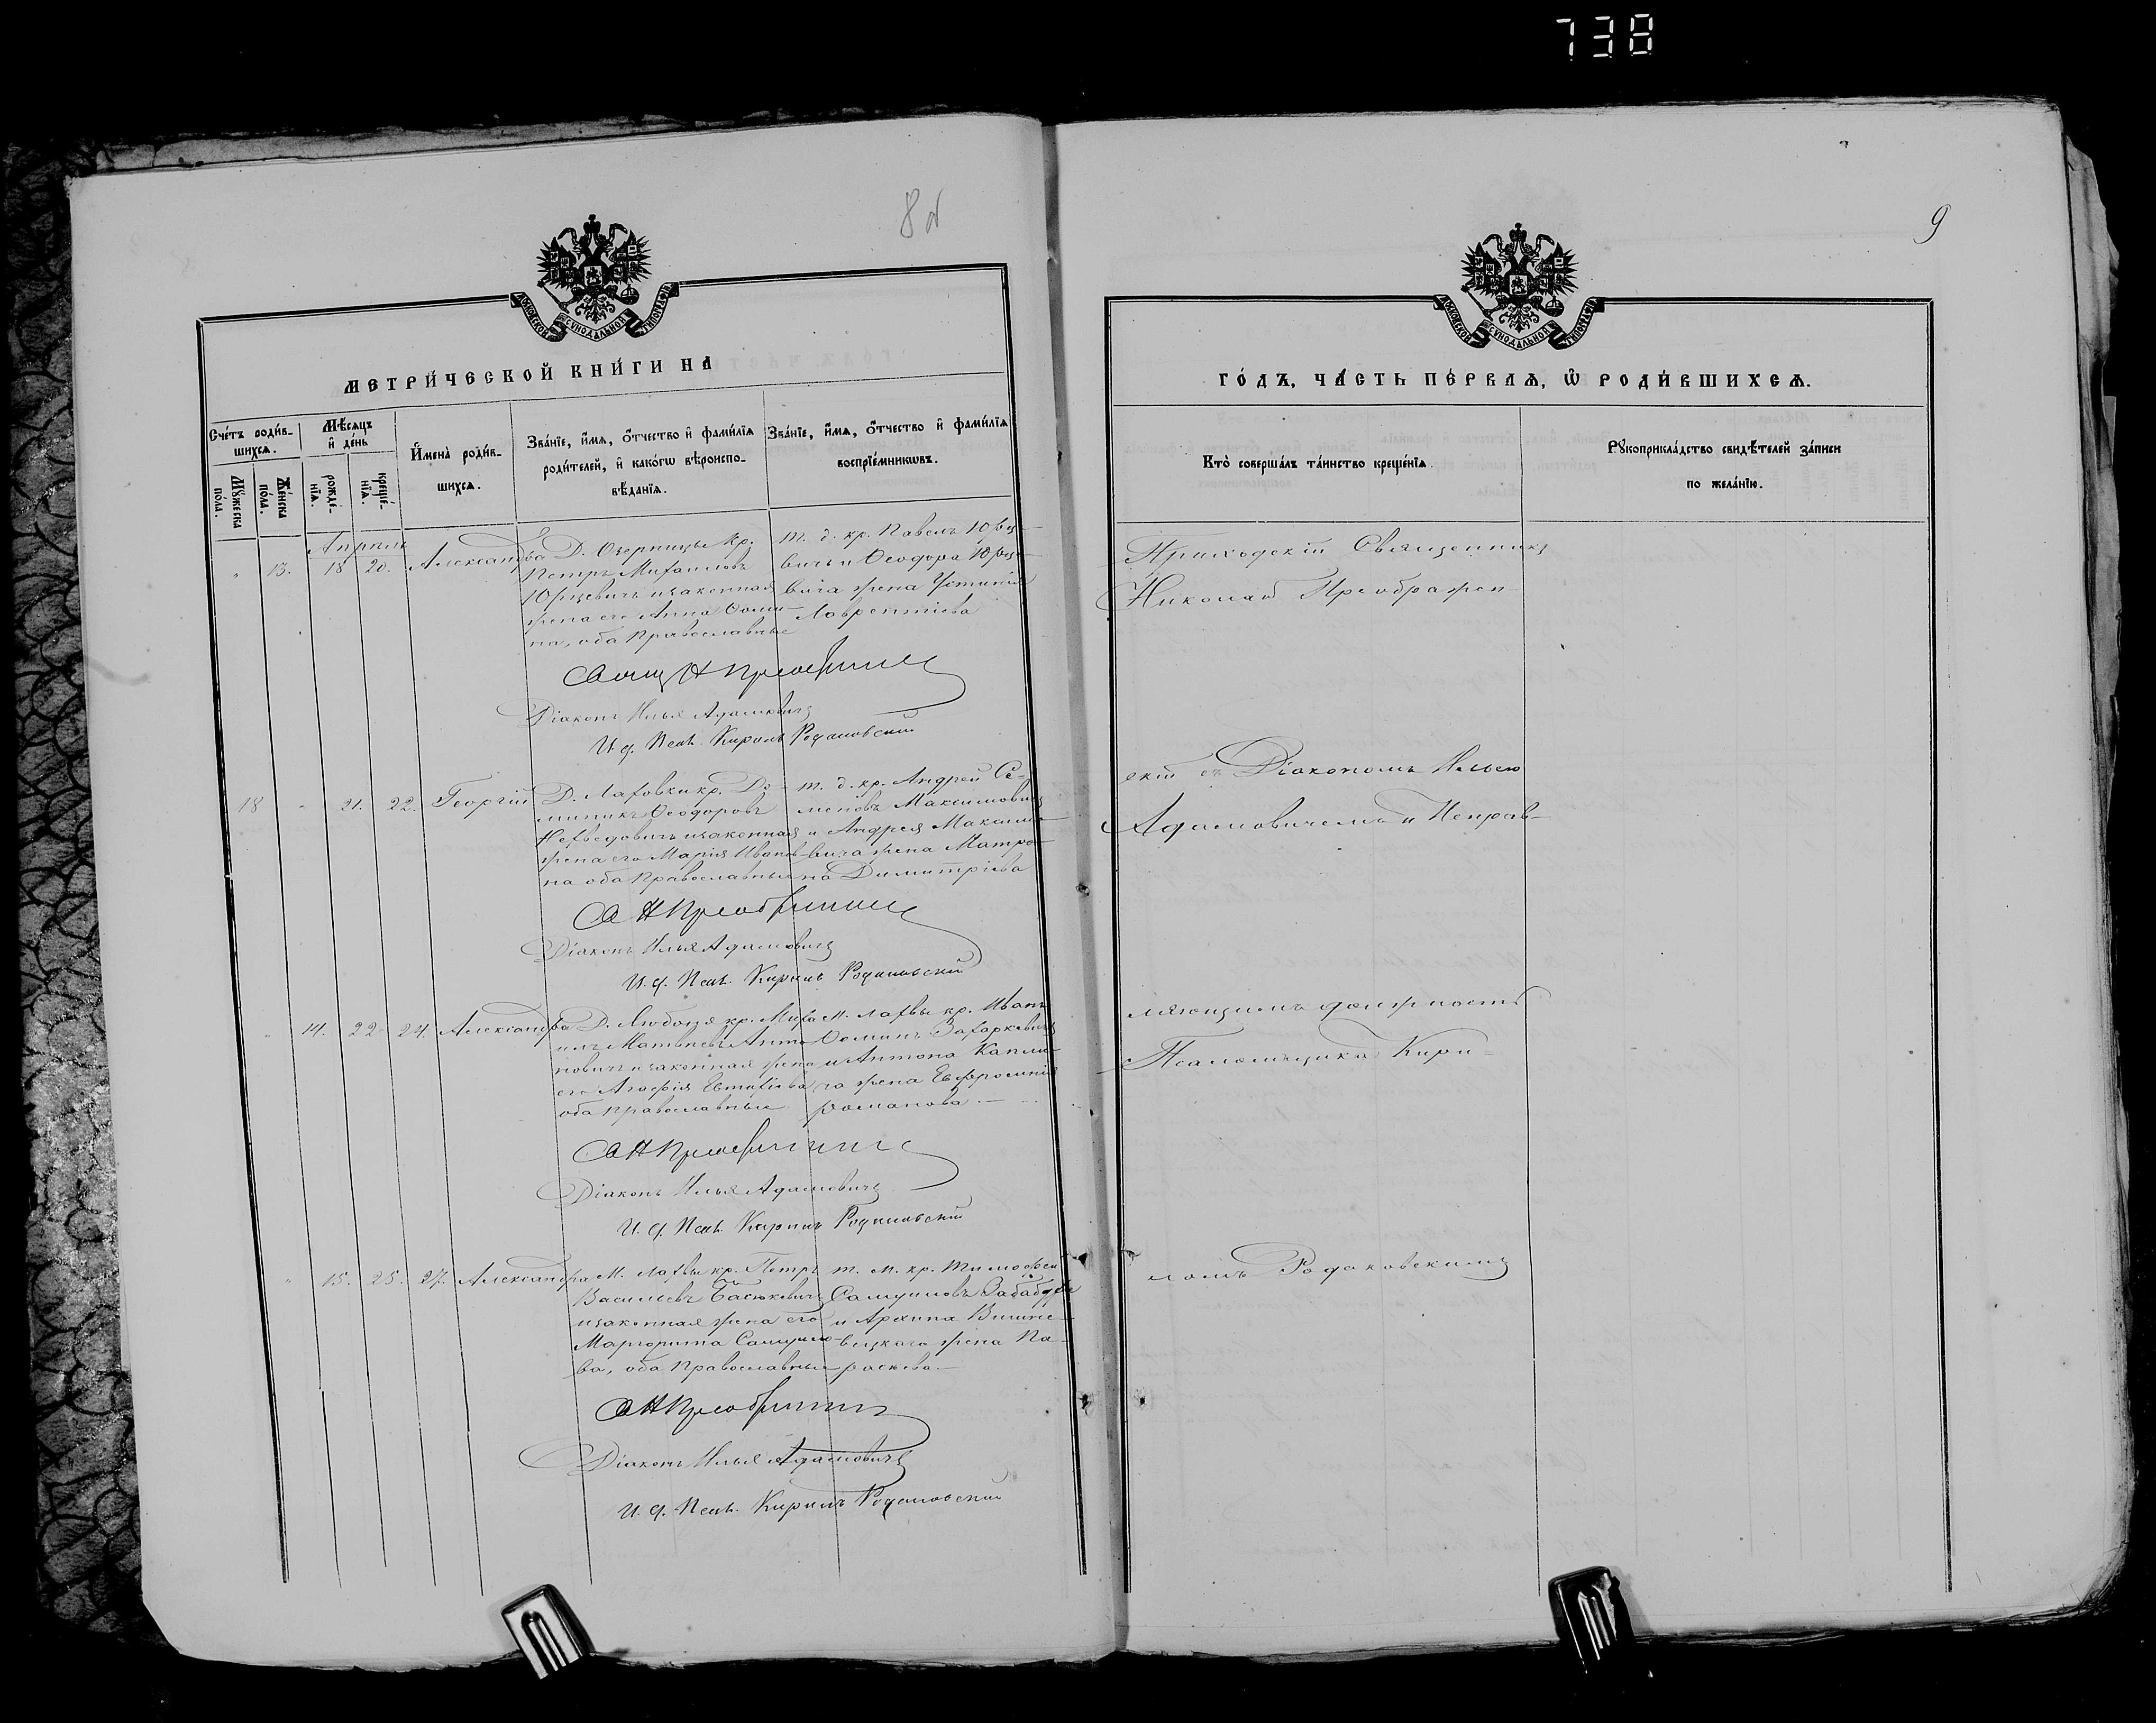 738
8 об
9
МОСКОВСКОЙ СѴНОДАЛЬНОЙ ТИПОГРАФІИ
МЕТРИ́ЧЕСКОЙ КНИ́ГИ НА
Сче́тъ роди́в-
шихсѧ.
Мѣ́сѧцъ
и҆ де́нь
И҆мена̀ роди́в-
шихсѧ.
Зва́нїе, и҆́мѧ, ѻ҆́тчество и҆ фами́лїѧ
роди́телей, и҆ како́гѡ вѣроиспо-
вѣ́данїѧ.
Зва́нїе, и҆́мѧ, ѻ҆́тчество и҆ фами́лїѧ
воспрїе́мникѡвъ.
Мꙋ́жеска
по́ла.
Же́нска
по́ла.
рожде́-
нїѧ.
креще́-
нїѧ.
Апрѣль
" 13. 18 20. Александра
Д. Озерницы кр.
Петръ Михаиловъ
Юрцевичъ и законная
жена его Анна Ѳоми-
на, оба Православные
т. д. кр. Павелъ Юрце-
вичъ и Ѳеодора Юрце-
вича жена Устинія
Лаврентіева
Діаконъ Илья Адамовичъ
И. д. Псал. Кирилъ Родаковскій
18 " 21. 22. Георгій
Д. Лаховки кр. До-
миникъ Ѳеодоровъ
Нехведовичъ и законная
жена его Марія Иванов-
на оба Православные
т. д. кр. Андрей Се-
меновъ Максимовичъ
и Андрея Максимо-
вича жена Матро-
на Димитріева
Діаконъ Илья Адамовичъ
И. д. Псал. Кирилъ Родаковскій
" 14. 22 24. Александра
Д. Любоня кр. Миха-
илъ Матвѣевъ Анто-
новичъ и законная жена
его Агафія Евтихіева
оба православные
м. Лахвы кр. Иванъ
Ѳоминъ Захаркевичъ
и Антона
жена Евфросинія
Романова
Діаконъ Илья Адамовичъ
И. д. Псал. Кирилъ Родаковскій
" 15. 25. 27. Александра
М. Лахвы кр. Петръ
Васильевъ Басюкевичъ
и законная жена его
Маргарита Самуило-
ва, оба Православные
т. м. кр. Тимофей
Самуиловъ
и Архипа Вишне-
вецкаго жена Па-
раскева
Діаконъ Илья Адамовичъ
И. д. Псал. Кирилъ Родаковскій
МОСКОВСКОЙ СѴНОДАЛЬНОЙ ТИПОГРАФІИ
ГО́ДЪ, ЧА́СТЬ ПЕ́РВАѦ, Ѽ РОДИ́ВШИХСѦ.
Кто̀ соверша́лъ та́инство креще́нїѧ.
Рꙋкоприкла́дство свидѣ́телей за́писи
по жела́нїю.
Приходскій Священникъ
Николай Преображен-
скій съ Діакономъ Ильею
Адамовичемъ и Исправ-
ляющимъ должность
Псаломщика Кири-
ломъ Родаковскимъ